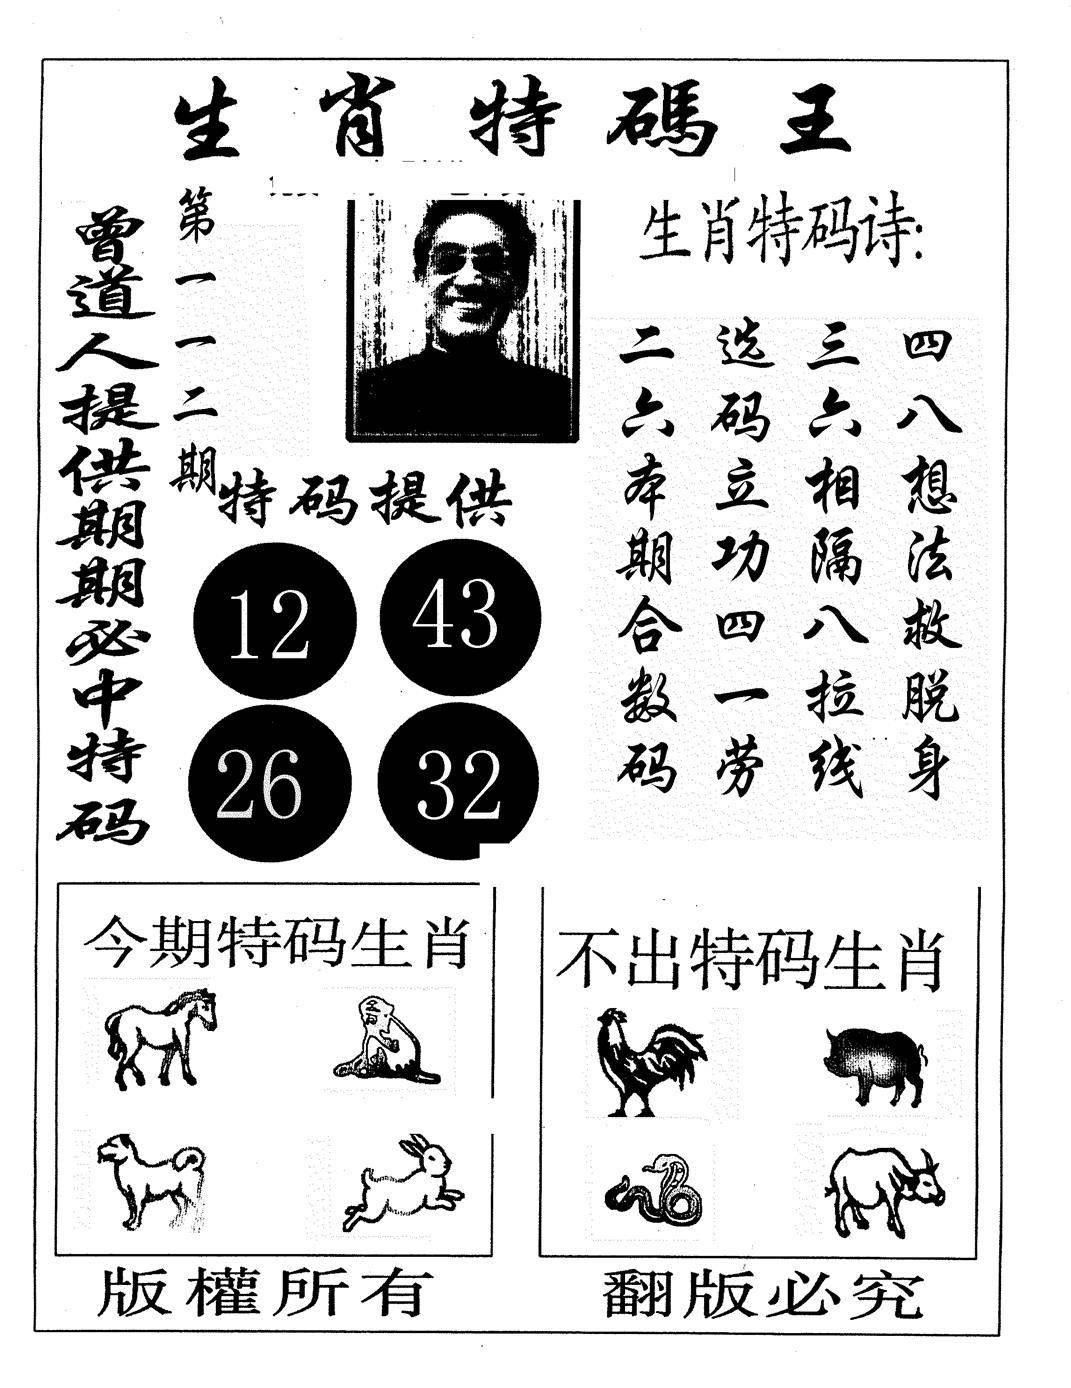 生肖特碼王
曾道人提供期期必中特码
第一一二期
生肖特码诗:
四八想法救脱身
三六相隔八拉线
选码立功四一劳
二六本期合数码
特码提供
12
43
26
32
今期特码生肖
不出特码生肖
版權所有
翻版必究